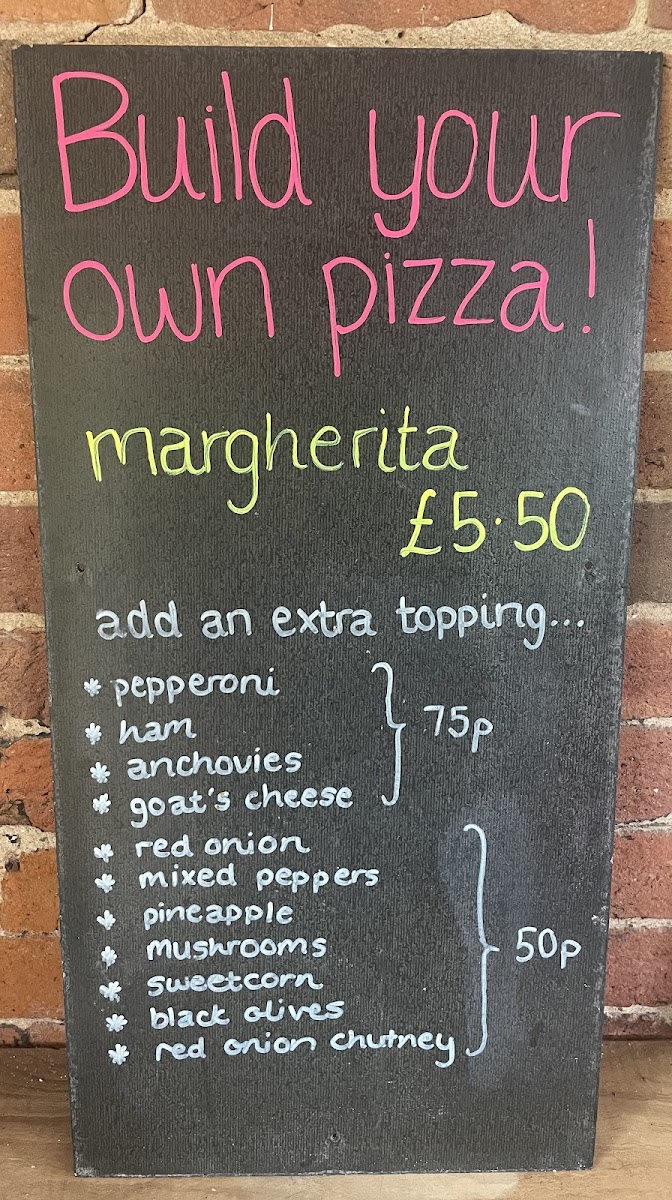 Build your
own pizza!
margherita
£5.50
add an extra topping...
* pepperoni
* ham
75p
* anchovies
* goat's cheese
* red onion
* mixed peppers
* pineapple
* mushrooms
50p
* sweetcorn
* black olives
* red onion chutney